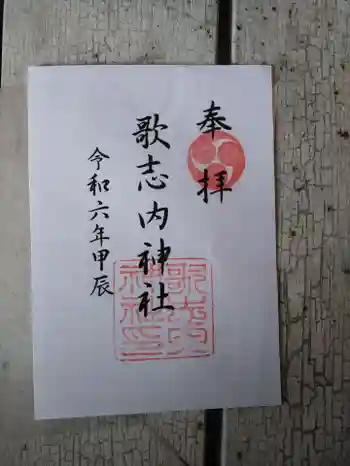 奉拝
歌志内神社
令和六年甲辰
歌志内
神社印